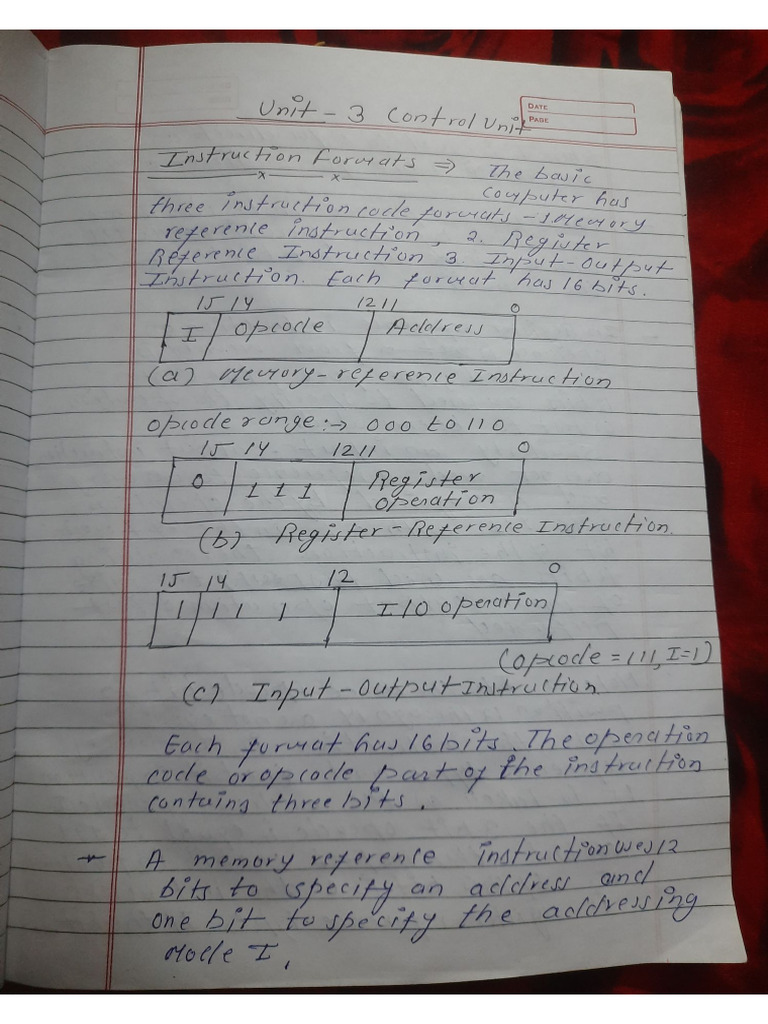 DATE
PAGE
Unit - 3 Control Unit
Instruction Formats ⇒ The basic
computer has
three instruction code formats - 1. Memory
reference instruction, 2. Register
Reference Instruction 3. Input-Output
Instruction. Each format has 16 bits.
15 14 12 11 0
I Opcode Address
(a) Memory-reference Instruction
Opcode range :→ 000 to 110
15 14 12 11 0
0 1 1 1 Register
operation
(b) Register-Reference Instruction.
15 14 12 0
1 1 1 1 I/O operation
(Opcode = 111, I=1)
(c) Input-Output Instruction
Each format has 16 bits. The operation
code or opcode part of the instruction
contains three bits.
* A memory reference instruction uses 12
bits to specify an address and
one bit to specify the addressing
Mode I.